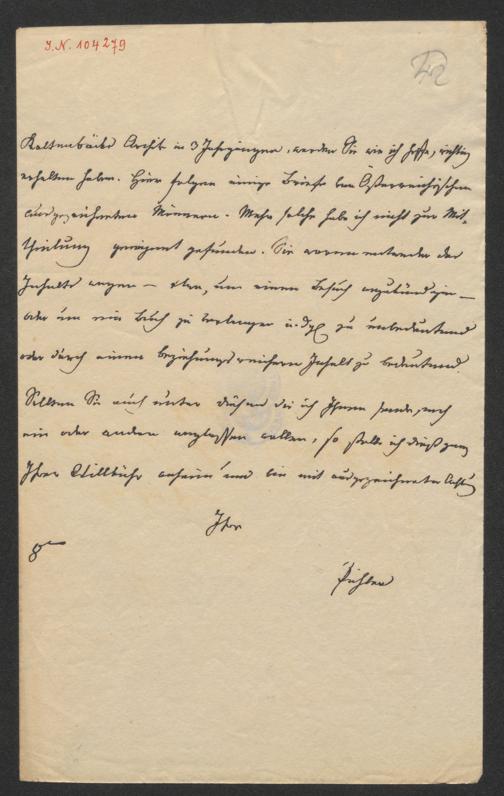 I.N. 104279
42
Kaltenbäcks Archiv in 3 Jahrgängen, werden Sie wie ich hoffe, richtig
erhalten haben. Hier folgen einige Briefe von Österreichischen
ausgezeichneten Männern. Mehr solche hab ich nicht zur Mit-
theilung geeignet gefunden. Sie waren entweder des
Inhalts wegen – etwa, um einen Besuch anzukündigen –
oder um ein Buch zu verlangen u. dgl. zu unbedeutend
oder durch einen beziehungsreichern Inhalt zu bedeutend.
Sollten Sie auch unter diesen die ich Ihnen sende, noch
ein oder andern weglassen wollen, so stelle ich dieß ganz
Ihrer Willkühr anheim und bin mit ausgezeichneter Achtung
Ihr
Pichler